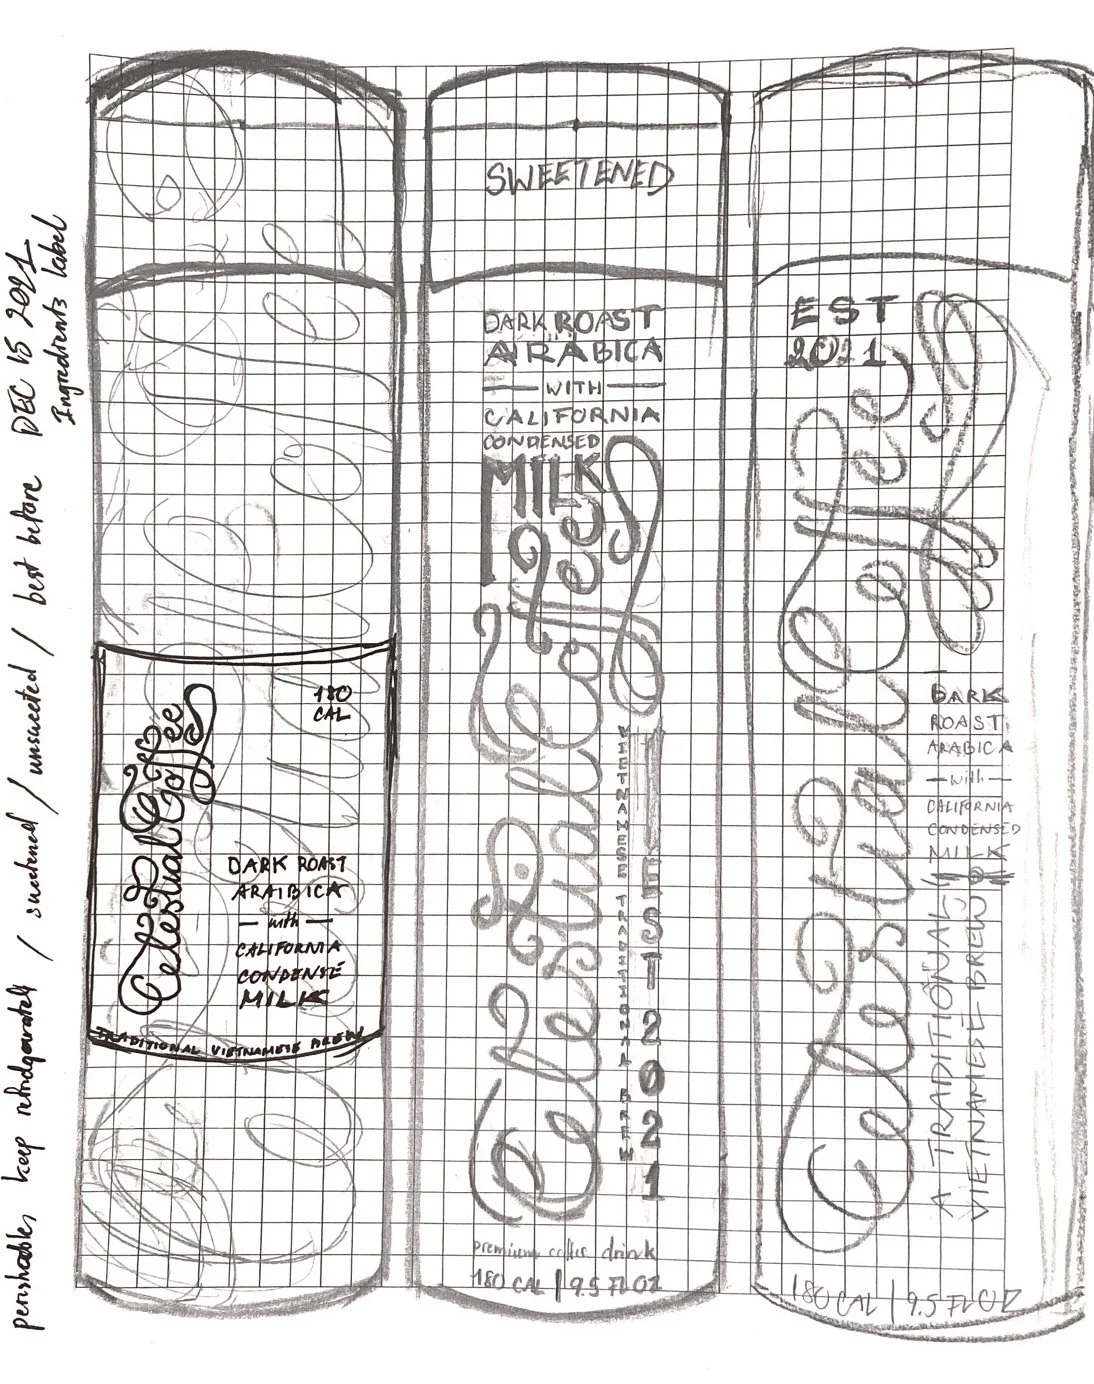 perishables, keep refridgerately / sweetened / unsweeted / best before DEC 15 2021
Ingredients label
Celestial Coffee
180
CAL
DARK ROAST
ARAIBICA
— with —
CALIFORNIA
CONDENSE
MILK
TRADITIONAL VIETNAMESE BREW
SWEETENED
DARK ROAST
ARABICA
— WITH —
CALIFORNIA
CONDENSED
MILK
Celestial Coffee
EST 2021
premium coffee drink
180 CAL | 9.5 FL OZ
EST
2021
Celestial Coffee
DARK
ROAST
ARABICA
— with —
CALIFORNIA
CONDENSED
MILK
A TRADITIONAL
VIETNAMESE BREW
180 CAL | 9.5 FL OZ